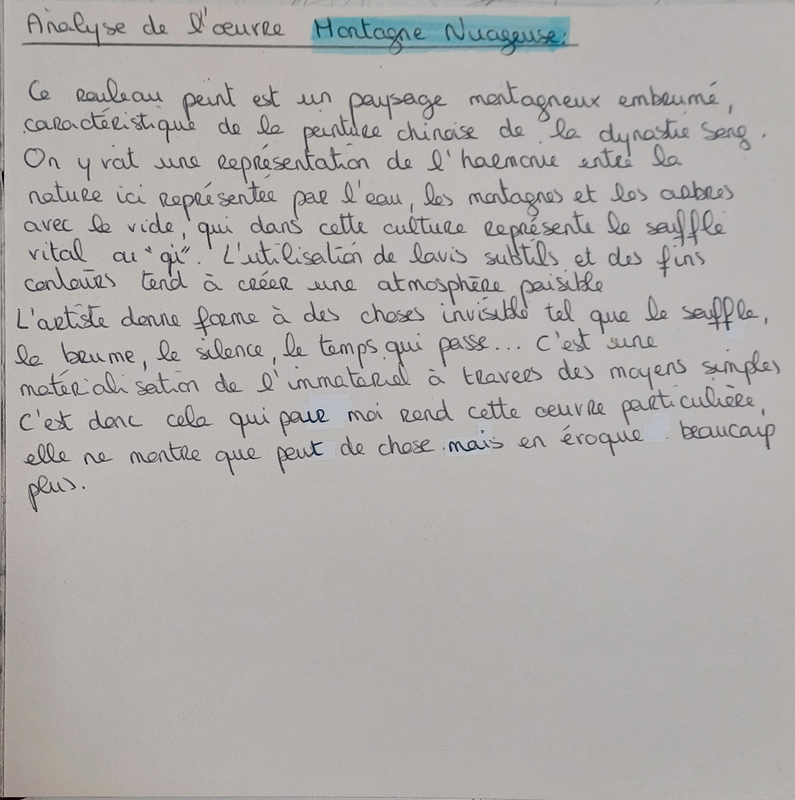 Analyse de l'œuvre Montagne Nuageuse:
Ce rouleau peint est un paysage montagneux embrumé,
caractéristique de la peinture chinoise de la dynastie Song.
On y voit une représentation de l'harmonie entre la
nature ici représentée par l'eau, les montagnes et les arbres
avec le vide, qui dans cette culture représente le souffle
vital ou "qi". L'utilisation de lavis subtils et des fins
contours tend à créer une atmosphère paisible
L'artiste donne forme à des choses invisible tel que le souffle,
la brume, le silence, le temps qui passe... C'est une
matérialisation de l'immatériel à travers des moyens simples
C'est donc cela qui pour moi rend cette œuvre particulière,
elle ne montre que peut de chose mais en évoque beaucoup
plus.